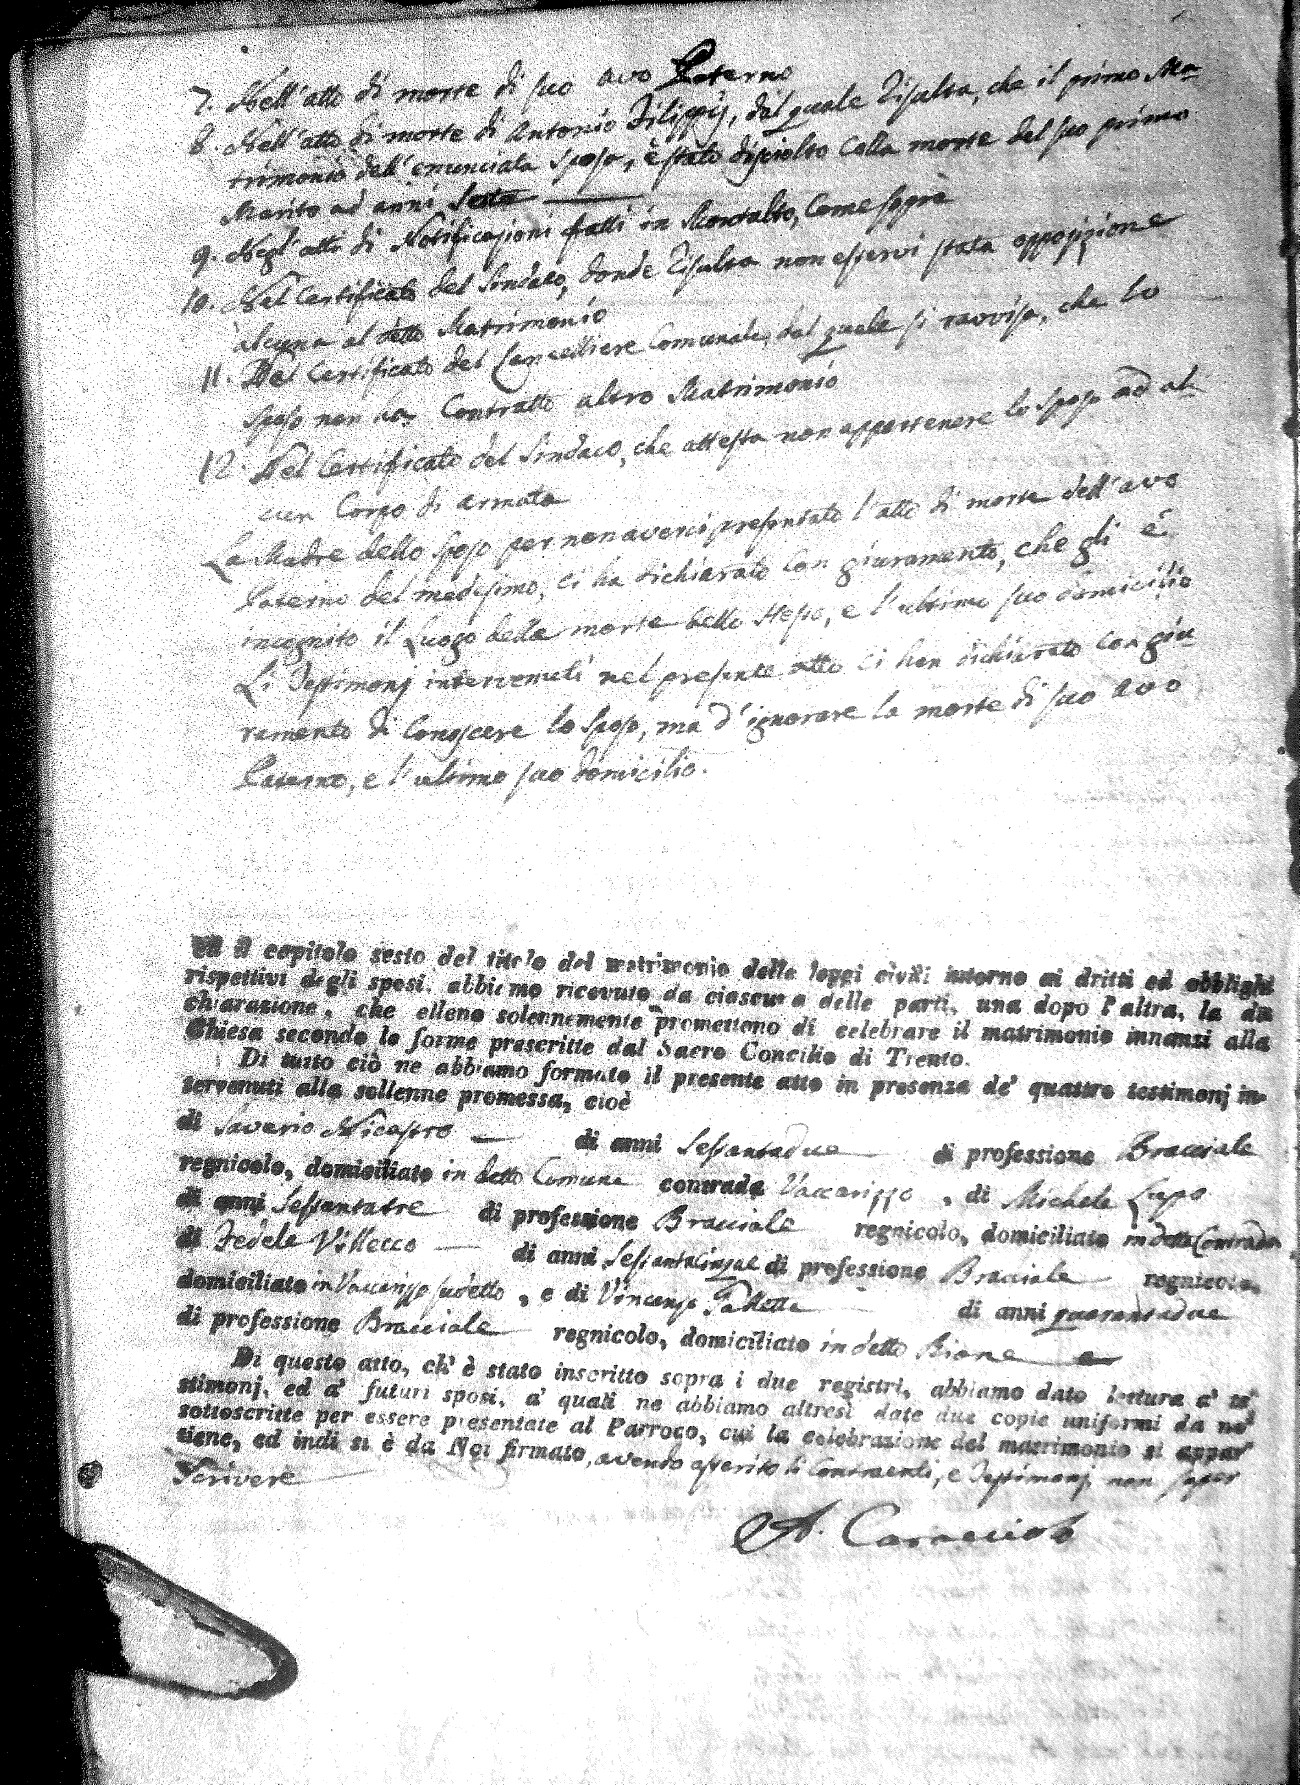 7. Nell'atto di morte di suo avo Paterno
8. Nell'atto di morte di Antonio Filippij, dal quale risulta, che il primo Ma-
trimonio dell'enunciata sposa, è stato disciolto colla morte del suo primo
Marito ad anni
9. Negl'atti di Notificazioni fatti in Montalto, come sopra
10. Nel Certificato del Sindaco, donde risulta non esservi stata opposizione
alcuna al detto Matrimonio
11. Nel Certificato del Cancelliere Comunale, dal quale si ravvisa, che lo
sposo non ha contratto altro Matrimonio
12. Nel Certificato del Sindaco, che attesta non appartenere lo sposo ad al-
cun Corpo di armata
La Madre dello sposo per non averci presentato l'atto di morte dell'avo
Paterno del medesimo, ci ha dichiarato con giuramento, che gli è
incognito il luogo della morte dello stesso, e l'ultimo suo domicilio
Li Testimonj intervenuti nel presente atto ci han dichiarato con giu-
ramento di conoscere lo sposo, ma d'ignorare la morte di suo avo
Paterno, e l'ultimo suo domicilio.
Ed il capitolo sesto del titolo del matrimonio delle leggi civili intorno ai dritti ed obblighi
rispettivi degli sposi, abbiamo ricevuto da ciascuna delle parti, una dopo l'altra, la di-
chiarazione, che elleno solennemente promettono di celebrare il matrimonio innanzi alla
Chiesa secondo le forme prescritte dal Sacro Concilio di Trento.
Di tutto ciò ne abbiamo formato il presente atto in presenza de' quattro testimonj in-
tervenuti alla sollenne promessa, cioè
di Saverio Nicastro di anni Sessantadue di professione Bracciale
regnicolo, domiciliato in detto Comune contrada Vaccarizzo, di Michele Lupo
di anni Sessantatre di professione Bracciale regnicolo, domiciliato in detta Contrada
di Fedele Villecco di anni Sessantacinque di professione Bracciale regnicolo,
domiciliato in Vaccarizzo sudetto, e di Vincenzo di anni quarantadue
di professione Bracciale regnicolo, domiciliato in detto
Di questo atto, ch' è stato inscritto sopra i due registri, abbiamo dato lettura a' te-
stimonj, ed a' futuri sposi, a' quali ne abbiamo altresì date due copie uniformi da noi
sottoscritte per essere presentate al Parroco, cui la celebrazione del matrimonio si appar-
tiene, ed indi si è da Noi firmato, avendo asserito li Contraenti, e Testimonj non saper
scrivere
A. Caracciolo